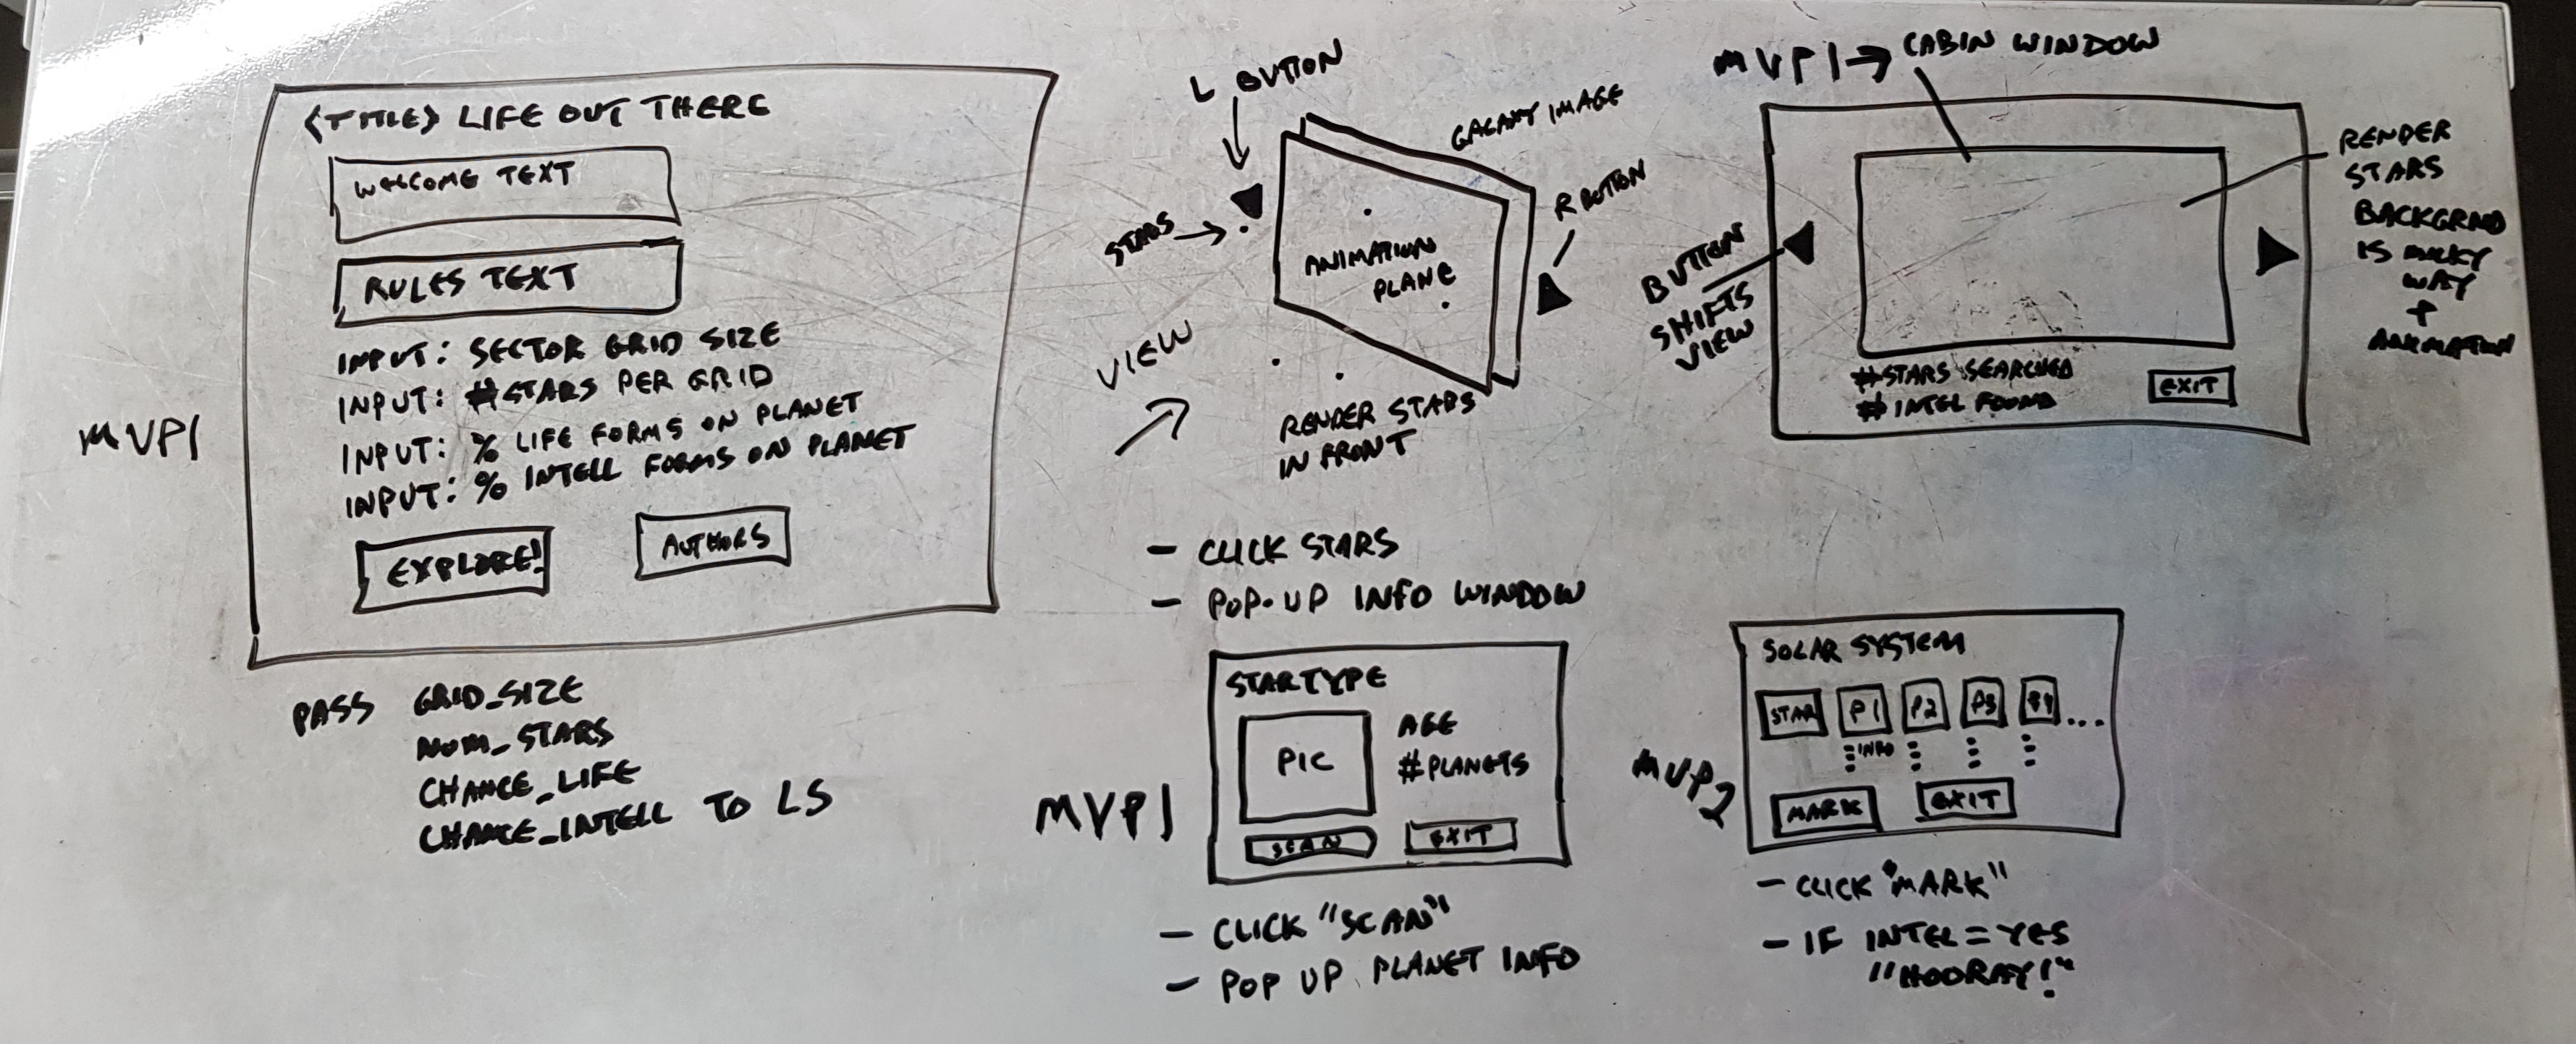 MVP1
<TITLE> LIFE OUT THERE
WELCOME TEXT
RULES TEXT
INPUT: SECTOR GRID SIZE
INPUT: #STARS PER GRID
INPUT: % LIFE FORMS ON PLANET
INPUT: % INTELL FORMS ON PLANET
EXPLORE!
AUTHORS
PASS GRID_SIZE
NUM_STARS
CHANCE_LIFE
CHANCE_INTELL TO LS
L BUTTON
GALAXY IMAGE
STARS →
R BUTTON
ANIMATION
PLANE
VIEW
RENDER STARS
IN FRONT
- CLICK STARS
- POP-UP INFO WINDOW
MVP1
STARTYPE
PIC
AGE
#PLANETS
SCAN
EXIT
- CLICK "SCAN"
- POP UP PLANET INFO
MVP1 → CABIN WINDOW
BUTTON
SHIFTS
VIEW
RENDER
STARS
BACKGRND
IS MILKY
WAY
+
ANIMATION
#STARS SEARCHED
# INTEL FOUND
EXIT
MVP2
SOLAR SYSTEM
STAR P1 P2 P3 P4 ...
INFO
MARK
EXIT
- CLICK "MARK"
- IF INTEL = YES
"HOORAY!"